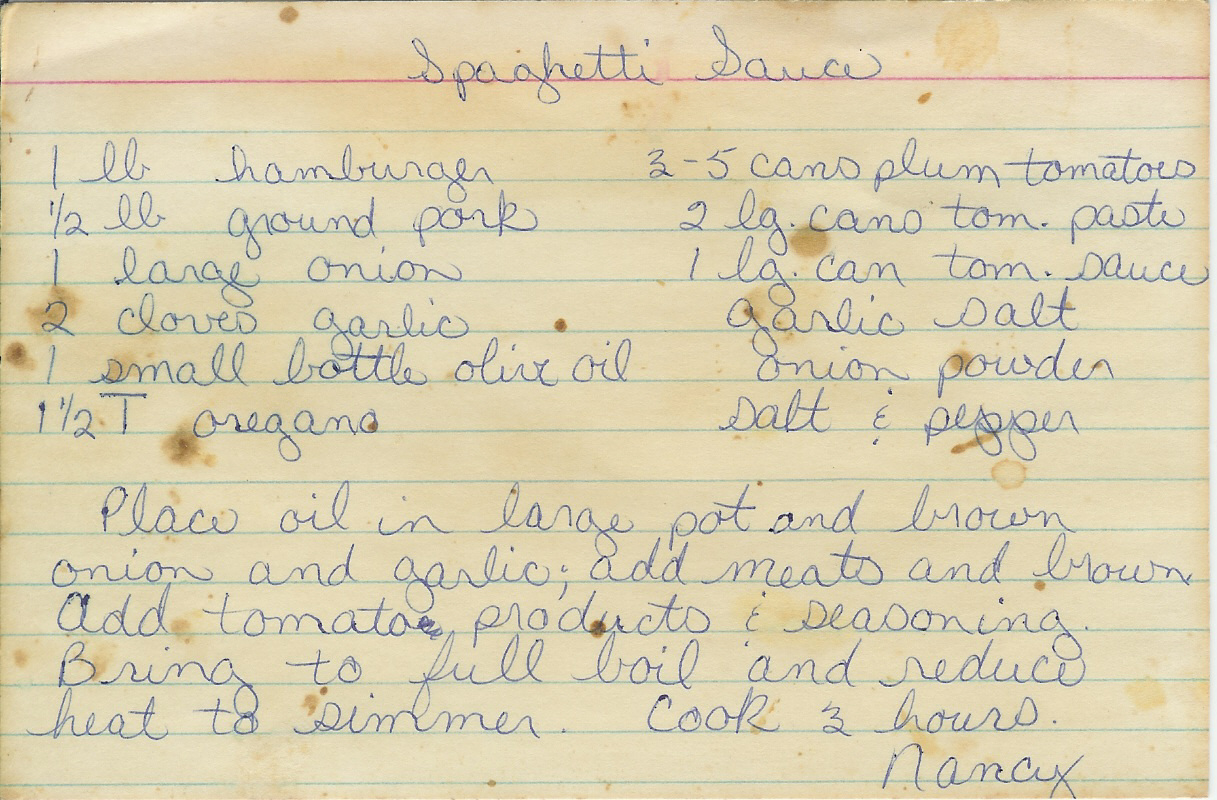 Spaghetti Sauce
1 lb hamburger
1/2 lb ground pork
1 large onion
2 cloves garlic
1 small bottle olive oil
1 1/2 T oregano
3-5 cans plum tomatoes
2 lg. cans tom. paste
1 lg. can tom. sauce
garlic salt
onion powder
salt & pepper
Place oil in large pot and brown
onion and garlic; add meats and brown.
Add tomatoe products & seasoning.
Bring to full boil and reduce
heat to simmer. Cook 3 hours.
Nancy